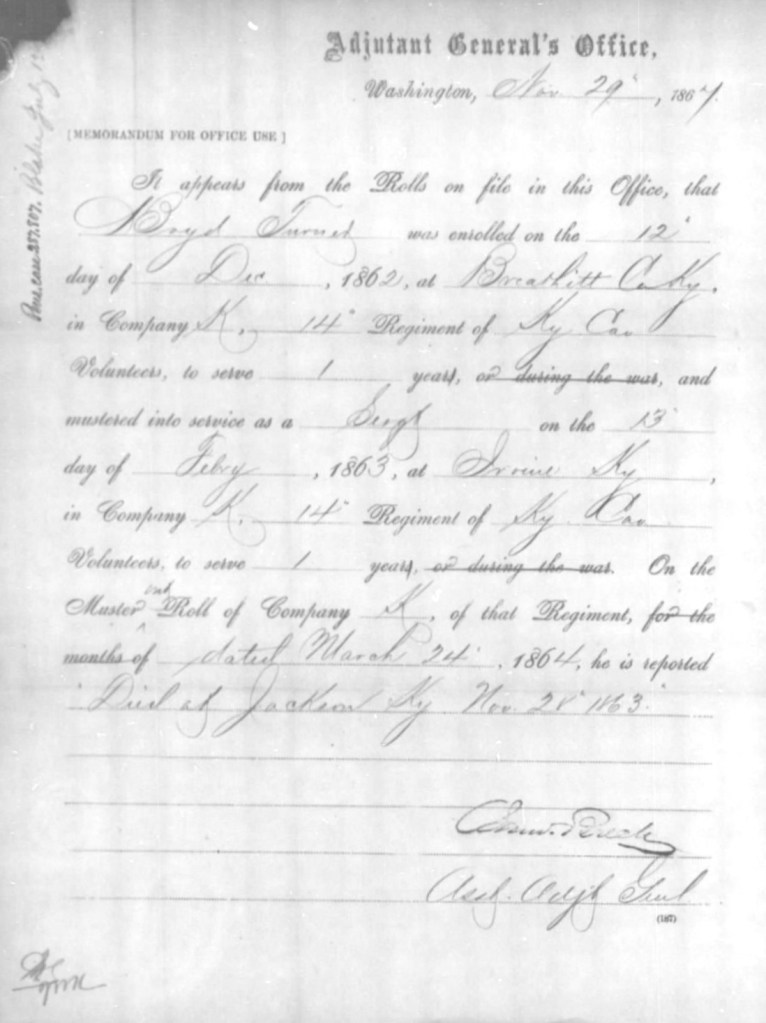 Adjutant General's Office,
Washington, Nov. 29", 1867.
[MEMORANDUM FOR OFFICE USE]
It appears from the Rolls on file in this Office, that
Boyd Turner was enrolled on the 12"
day of Dec, 1862, at Breathitt Co Ky,
in Company K, 14" Regiment of Ky Cav
Volunteers, to serve 1 years, or during the war, and
mustered into service as a Sergt on the 13"
day of Feby, 1863, at Irvine Ky,
in Company K, 14" Regiment of Ky Cav
Volunteers, to serve 1 years, or during the war. On the
Muster out Roll of Company K, of that Regiment, for the
months of dated March 24", 1864, he is reported
"Died at Jackson Ky Nov. 28" 1863."
Asst. Adjt Genl
(187)